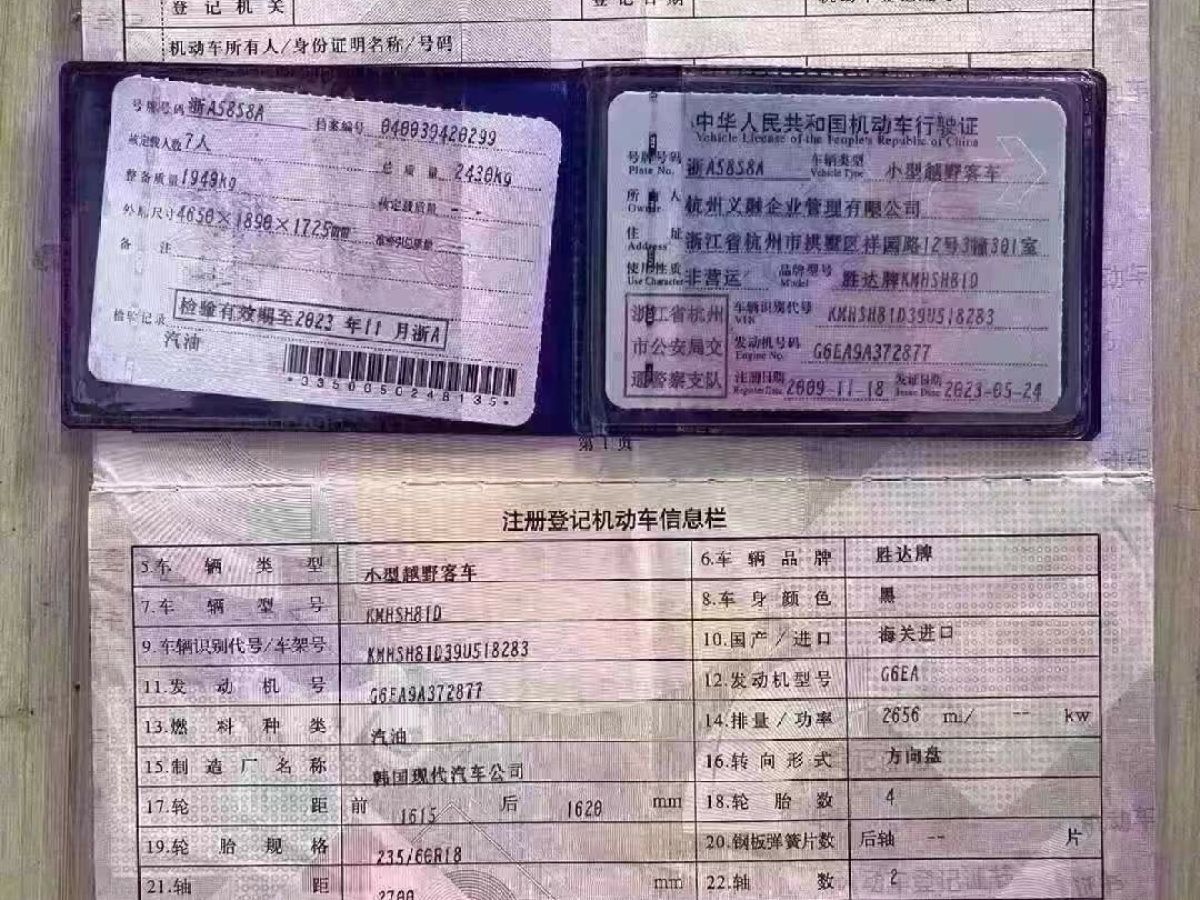 登记机关
登记日期
机动车所有人/身份证明名称/号码
号牌号码 浙A58S8A 档案编号 040039420299
核定载人数 7人 总质量 2430kg
整备质量 1949kg 核定载质量 --
外廓尺寸 4650×1890×1725mm 准牵引总质量 --
备注
检验记录 检验有效期至2023年11月浙A
汽油
*3350050248135*
中华人民共和国机动车行驶证
Vehicle License of the People's Republic of China
号牌号码 浙A58S8A 车辆类型 小型越野客车
Plate No. Vehicle Type
所有人 杭州义融企业管理有限公司
Owner
住址 浙江省杭州市拱墅区祥园路12号3幢301室
Address
使用性质 非营运 品牌型号 胜达牌KMHSH81D
Use Character Model
浙江省杭州市公安局交通警察支队
车辆识别代号 KMHSH81D39U518283
VIN
发动机号码 G6EA9A372877
Engine No.
注册日期 2009-11-18 发证日期 2023-05-24
Register Date Issue Date
第1页
注册登记机动车信息栏
5.车辆类型 小型越野客车 6.车辆品牌 胜达牌
7.车辆型号 KMHSH81D 8.车身颜色 黑
9.车辆识别代号/车架号 KMHSH81D39U518283 10.国产/进口 海关进口
11.发动机号 G6EA9A372877 12.发动机型号 G6EA
13.燃料种类 汽油 14.排量/功率 2656 ml/ -- kw
15.制造厂名称 韩国现代汽车公司 16.转向形式 方向盘
17.轮距 前 1615 后 1620 mm 18.轮胎数 4
19.轮胎规格 235/60R18 20.钢板弹簧片数 后轴 -- 片
21.轴距 2700 mm 22.轴数 2